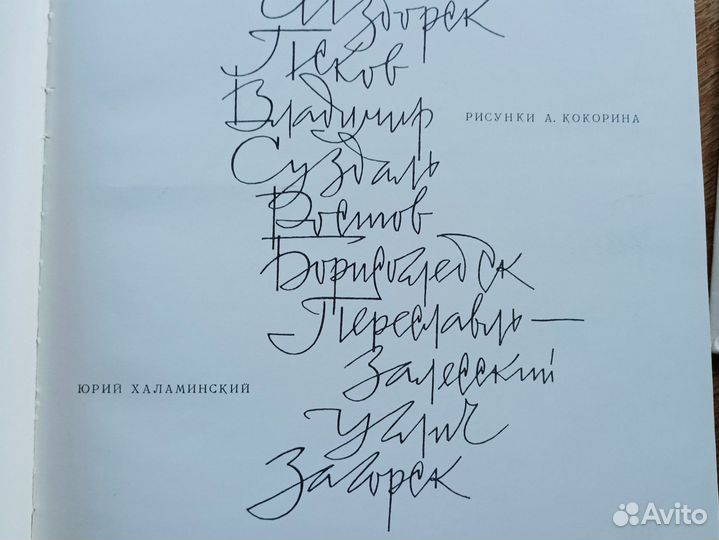 Изборск
Псков
Владимир
РИСУНКИ А. КОКОРИНА
Суздаль
Ростов
Борисоглебск
Переславль-
Залесский
ЮРИЙ ХАЛАМИНСКИЙ
Углич
Загорск
Avito